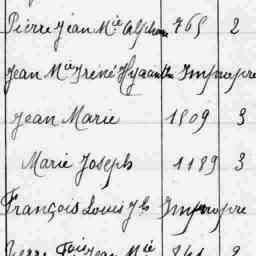 Pierre Jean Mie Alphonse 765 2
Jean Mie Iréné Hyacinthe Impropre
Jean Marie 1809 3
Marie Joseph 1189 3
François Louis Jh Impropre
Pierre Jean Mie 2